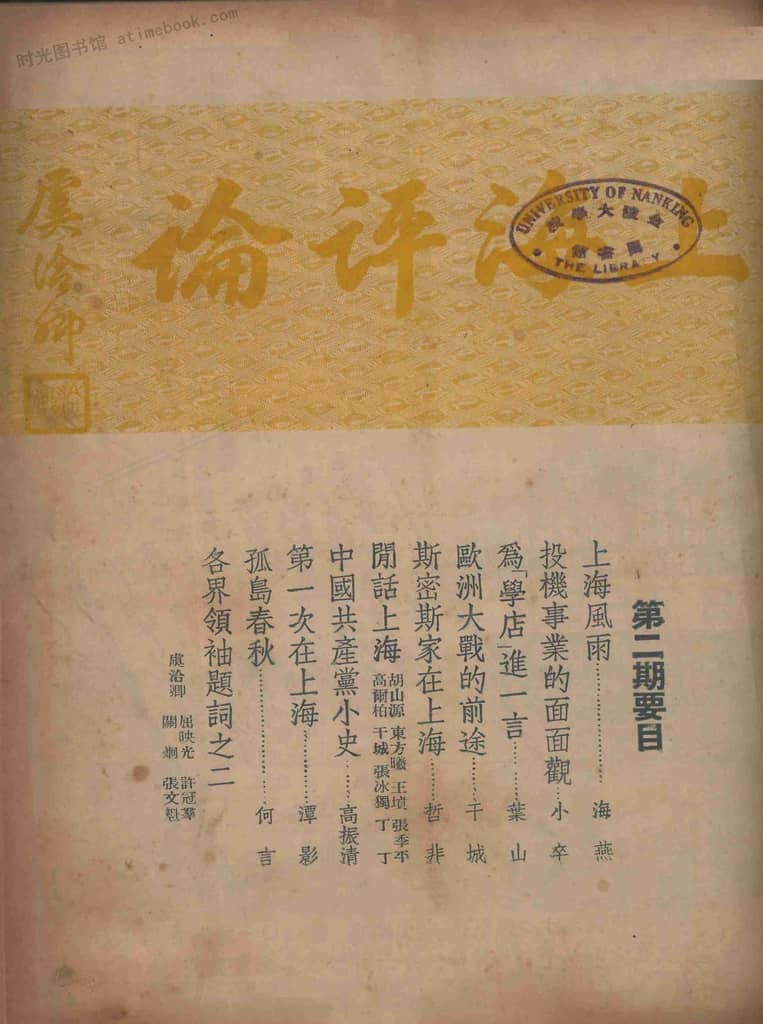 时光图书馆 atimebook.com
上海评論
虞洽卿
UNIVERSITY OF NANKING
金陵大學校
圖書館
THE LIBRARY
第二期要目
上海風雨………………海燕
投機事業的面面觀…小卒
爲「學店」進一言……葉山
歐洲大戰的前途………干城
斯密斯家在上海………哲非
閒話上海 胡山源 東方曦 王墳 張季平
高爾柏 干城 張冰獨 丁丁
中國共產黨小史……高振清
第一次在上海………潭影
孤島春秋………………何言
各界領袖題詞之二
屈映光 許冠羣
虞洽卿 關炯 張文魁